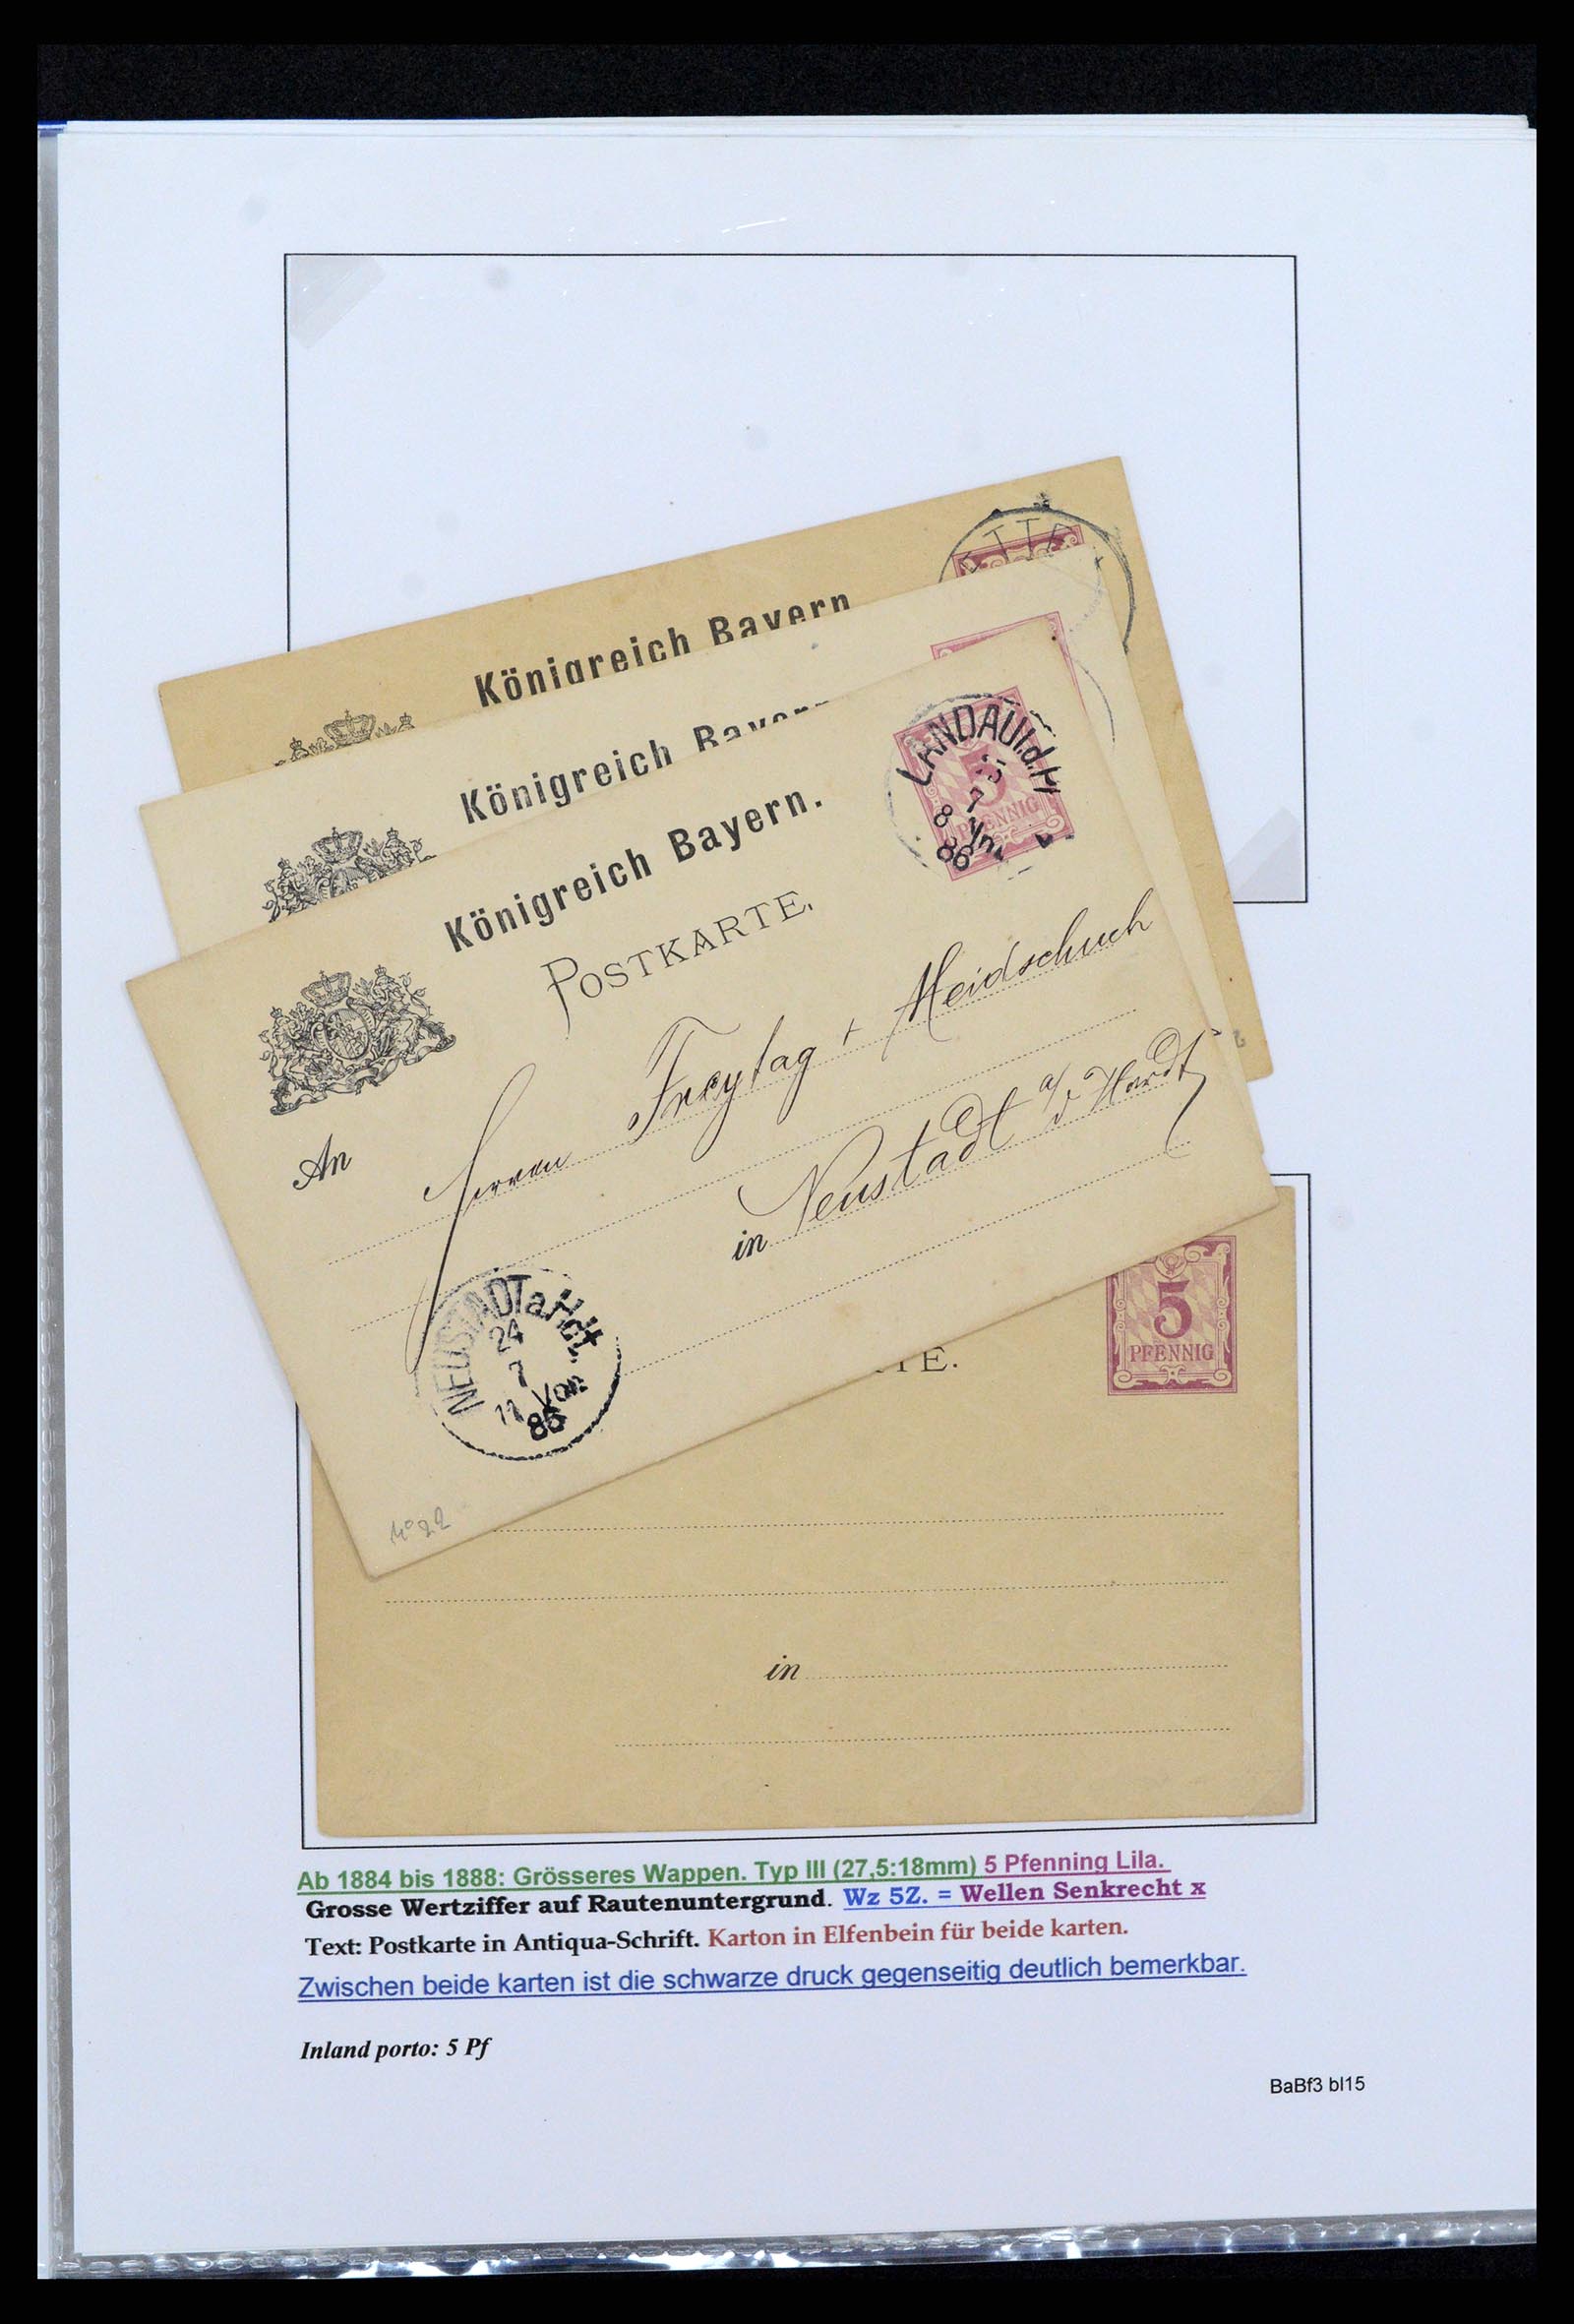 Königreich Bayern
Königreich Bayern
Königreich Bayern.
POSTKARTE.
LANDAU I.d.
5
PFENNIG
7
8
86
An
Herren Freytag + Meidschuch
in Neustadt a/d Hardt
NEUSTADT a. Hdt.
24
7
11 Vor
86
№ 22
TE.
5
PFENNIG
in
Ab 1884 bis 1888: Grösseres Wappen. Typ III (27,5:18mm) 5 Pfenning Lila.
Grosse Wertziffer auf Rautenuntergrund. Wz 5Z. = Wellen Senkrecht x
Text: Postkarte in Antiqua-Schrift. Karton in Elfenbein für beide karten.
Zwischen beide karten ist die schwarze druck gegenseitig deutlich bemerkbar.
Inland porto: 5 Pf
BaBf3 bl15